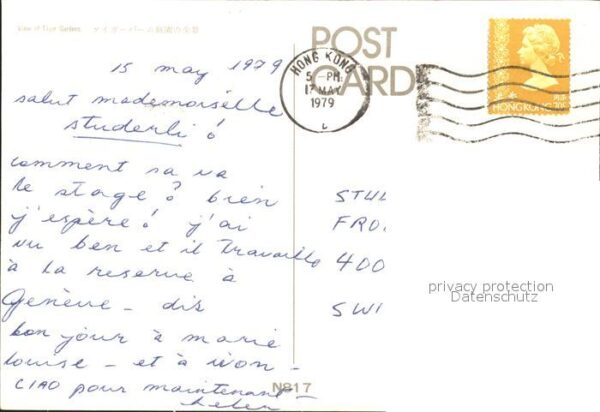 View of Tiger Gardens タイガーバーム庭園の全景
POST
CARD
HONG KONG
5 - PM
17 MAY
1979
HONG KONG
15 may 1979
salut mademoiselle
studerli !
comment sa va
le stage ? bien
j'espère ! j'ai
vu ben et il travaille
à la reserve à
Genève - dis
bon jour à marie
louise - et à ivon -
CIAO pour maintenant -
STU
FRO
400
SWI
privacy protection
Datenschutz
N817